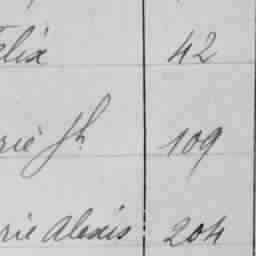 elix 42
rie Jh 109
rie Alexis 204